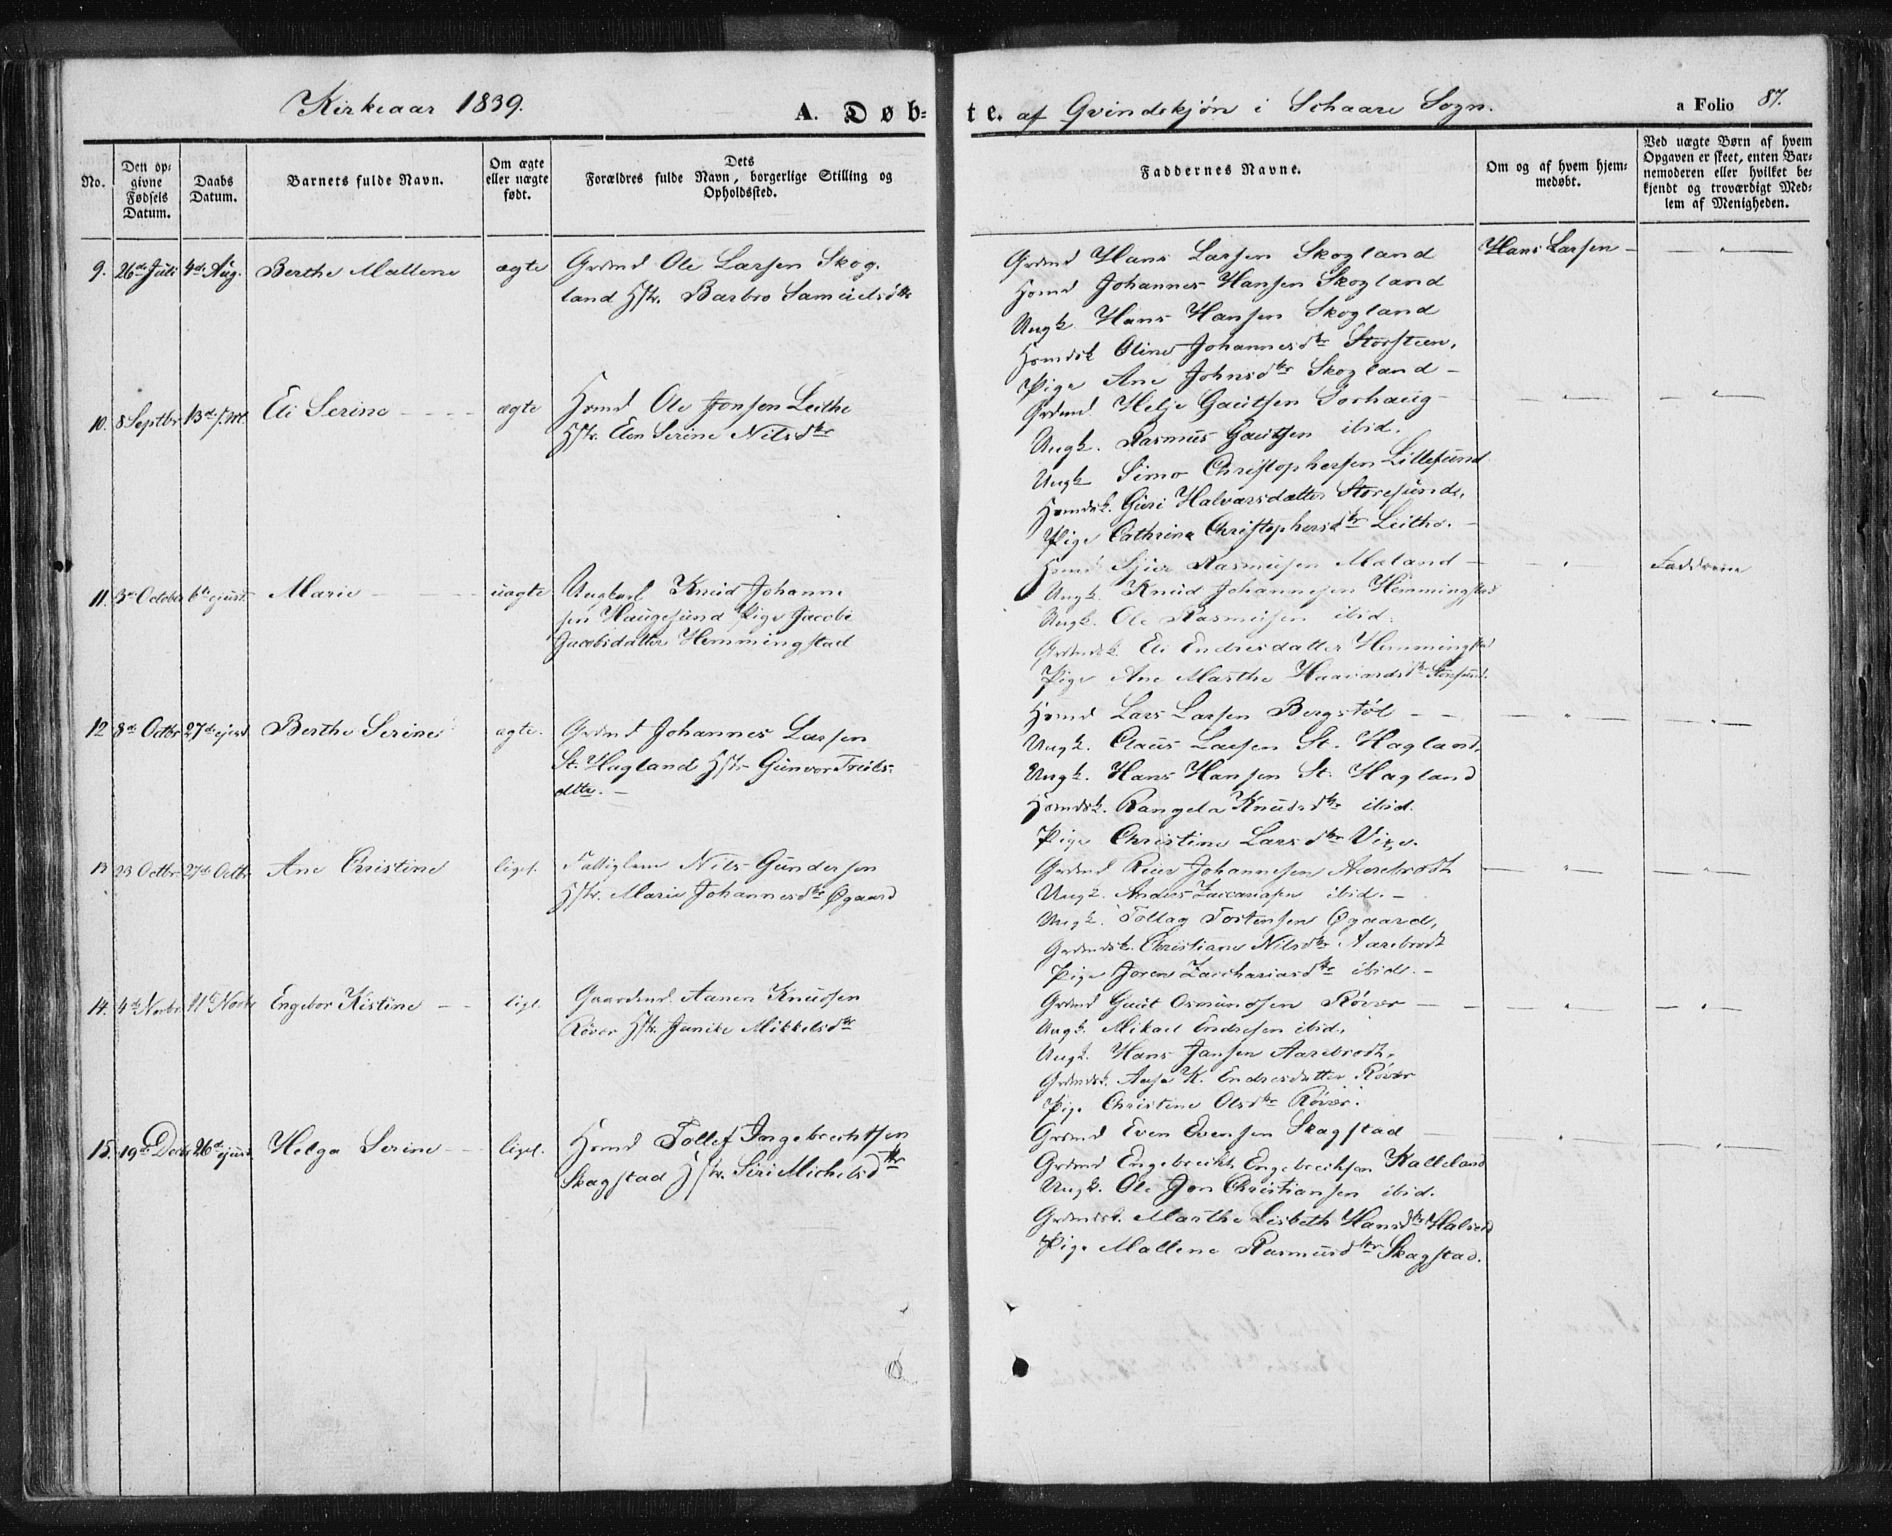 Kirkeaar 1839.
A. Døb-
te. af Qvindekjøn i Schaare Sogn.
a Folio 87.
No.
Den op-
givne
Fødsels
Datum.
Daabs
Datum.
Barnets fulde Navn.
Om ægte
eller uægte
født.
Dets
Forældres fulde Navn, borgerlige Stilling og
Opholdssted.
Faddernes Navne.
Om og af hvem hjem-
medøbt.
Ved uægte Børn af hvem
Opgaven er skeet, enten Bar-
nemoderen eller hvilket be-
kjendt og troværdigt Med-
lem af Menigheden.
9. 26de Juli 4de Aug. Berthe Mallene ægte Grdmd Ole Larsen Skog-
land Hstr. Barbro Samuelsdtr
Grdmd Hans Larsen Skogland
Hsmd Johannes Hansen Skogland
Ungk. Hans Hansen Skogland
Hsmdsk Oline Johannesdtr Storsteen,
Pige Ane Johnsdtr Skogland -
Hans Larsen - - " -
10. 8 Septbr 13de s.M. Eli Serine - - - - ægte Hsmd Ole Jonsen Leithe
Hstr. Elen Serine Nilsdtr
Grdmd Helje Gautsen Sørhaug -
Ungk. Rasmus Gautsen ibid.
Ungk Simo Christophersen Lillesund
Hsmdsk. Guri Halvarsdatter Storesund,
Pige Cathrine Christophersdtr Leithe. -
- " - - " -
11. 3de October 6te ejusd. Marie - - uægte Ungkarl Knud Johanne
sen Haugesund Pige Jacobe
Jacobsdatter Hemmingstad
Hsmd Sjur Rasmusen Maland -
Ungk. Knud Johannesen Hemmingstad
Ungk. Ole Rasmusen ibid.
Grdmdsk. Eli Endresdatter Hemmingstad
Pige Ane Marthe Haavardsdtr Storesund.
" Fadderne
12 8de Octbr 27de ejusd. Berthe Serine ægte. Grdmd Johannes Larsen
St. Hagland Hstr Gunvor Truls-
dttr. -
Hsmd Lars Larsen Bergstøl - -
Ungk. Claus Larsen St. Hagland.
Ungk. Hans Hansen St. Hagland
Hsmdsk. Rangela Knudsdtr ibid.
Pige Christine Larsdtr Vixe.
- " - - " -
13 23 Octbr 27de Octbr Ane Christine ligel. Fattiglem Nils Gundersen
Hstr. Marie Johannesdtr Øgaard
Grdmd Reier Johannesen Aarebroth
Ungk. Anders Zaccariasen ibid. -
Ungk. Tollag Tostensen Øgaard,
Grdmdsk. Christiane Nilsdtr Aarebrodt
Pige Joren Zacchariasdtr ibid. -
- " - - " -
14. 4de Novbr. 11te Novbr Engebor Kistine - - ligl. Gaardmd. Aanen Knudsen
Røvær Hstr. Janike Mikkelsdtr
Grdmd Gaut Osmundsen Røvær -
Ungk. Mikael Endresen ibid.
Ungk. Hans Jansen Aarebrodt,
Grdmdsk. Aasa K. Endresdatter Røvær
Pige Christine Olsdtr Røvær.
- " - - " -
15. 19de Decbr 26de ejusd. Helga Serine - - ligel. Hsmd Tollef Ingebrechtsen
Skagstad Hstr. Siri Michelsdtr
Grdmd Even Evensen Skagstad -
Grdmd Engebrecht Engebrechsen Kalleland
Ungk. Ole Jon Christiansen ibid.
Grdmdsk. Marthe Lisbeth Hansdtr
Pige Mallene Rasmusdtr Skagstad.
" - " -